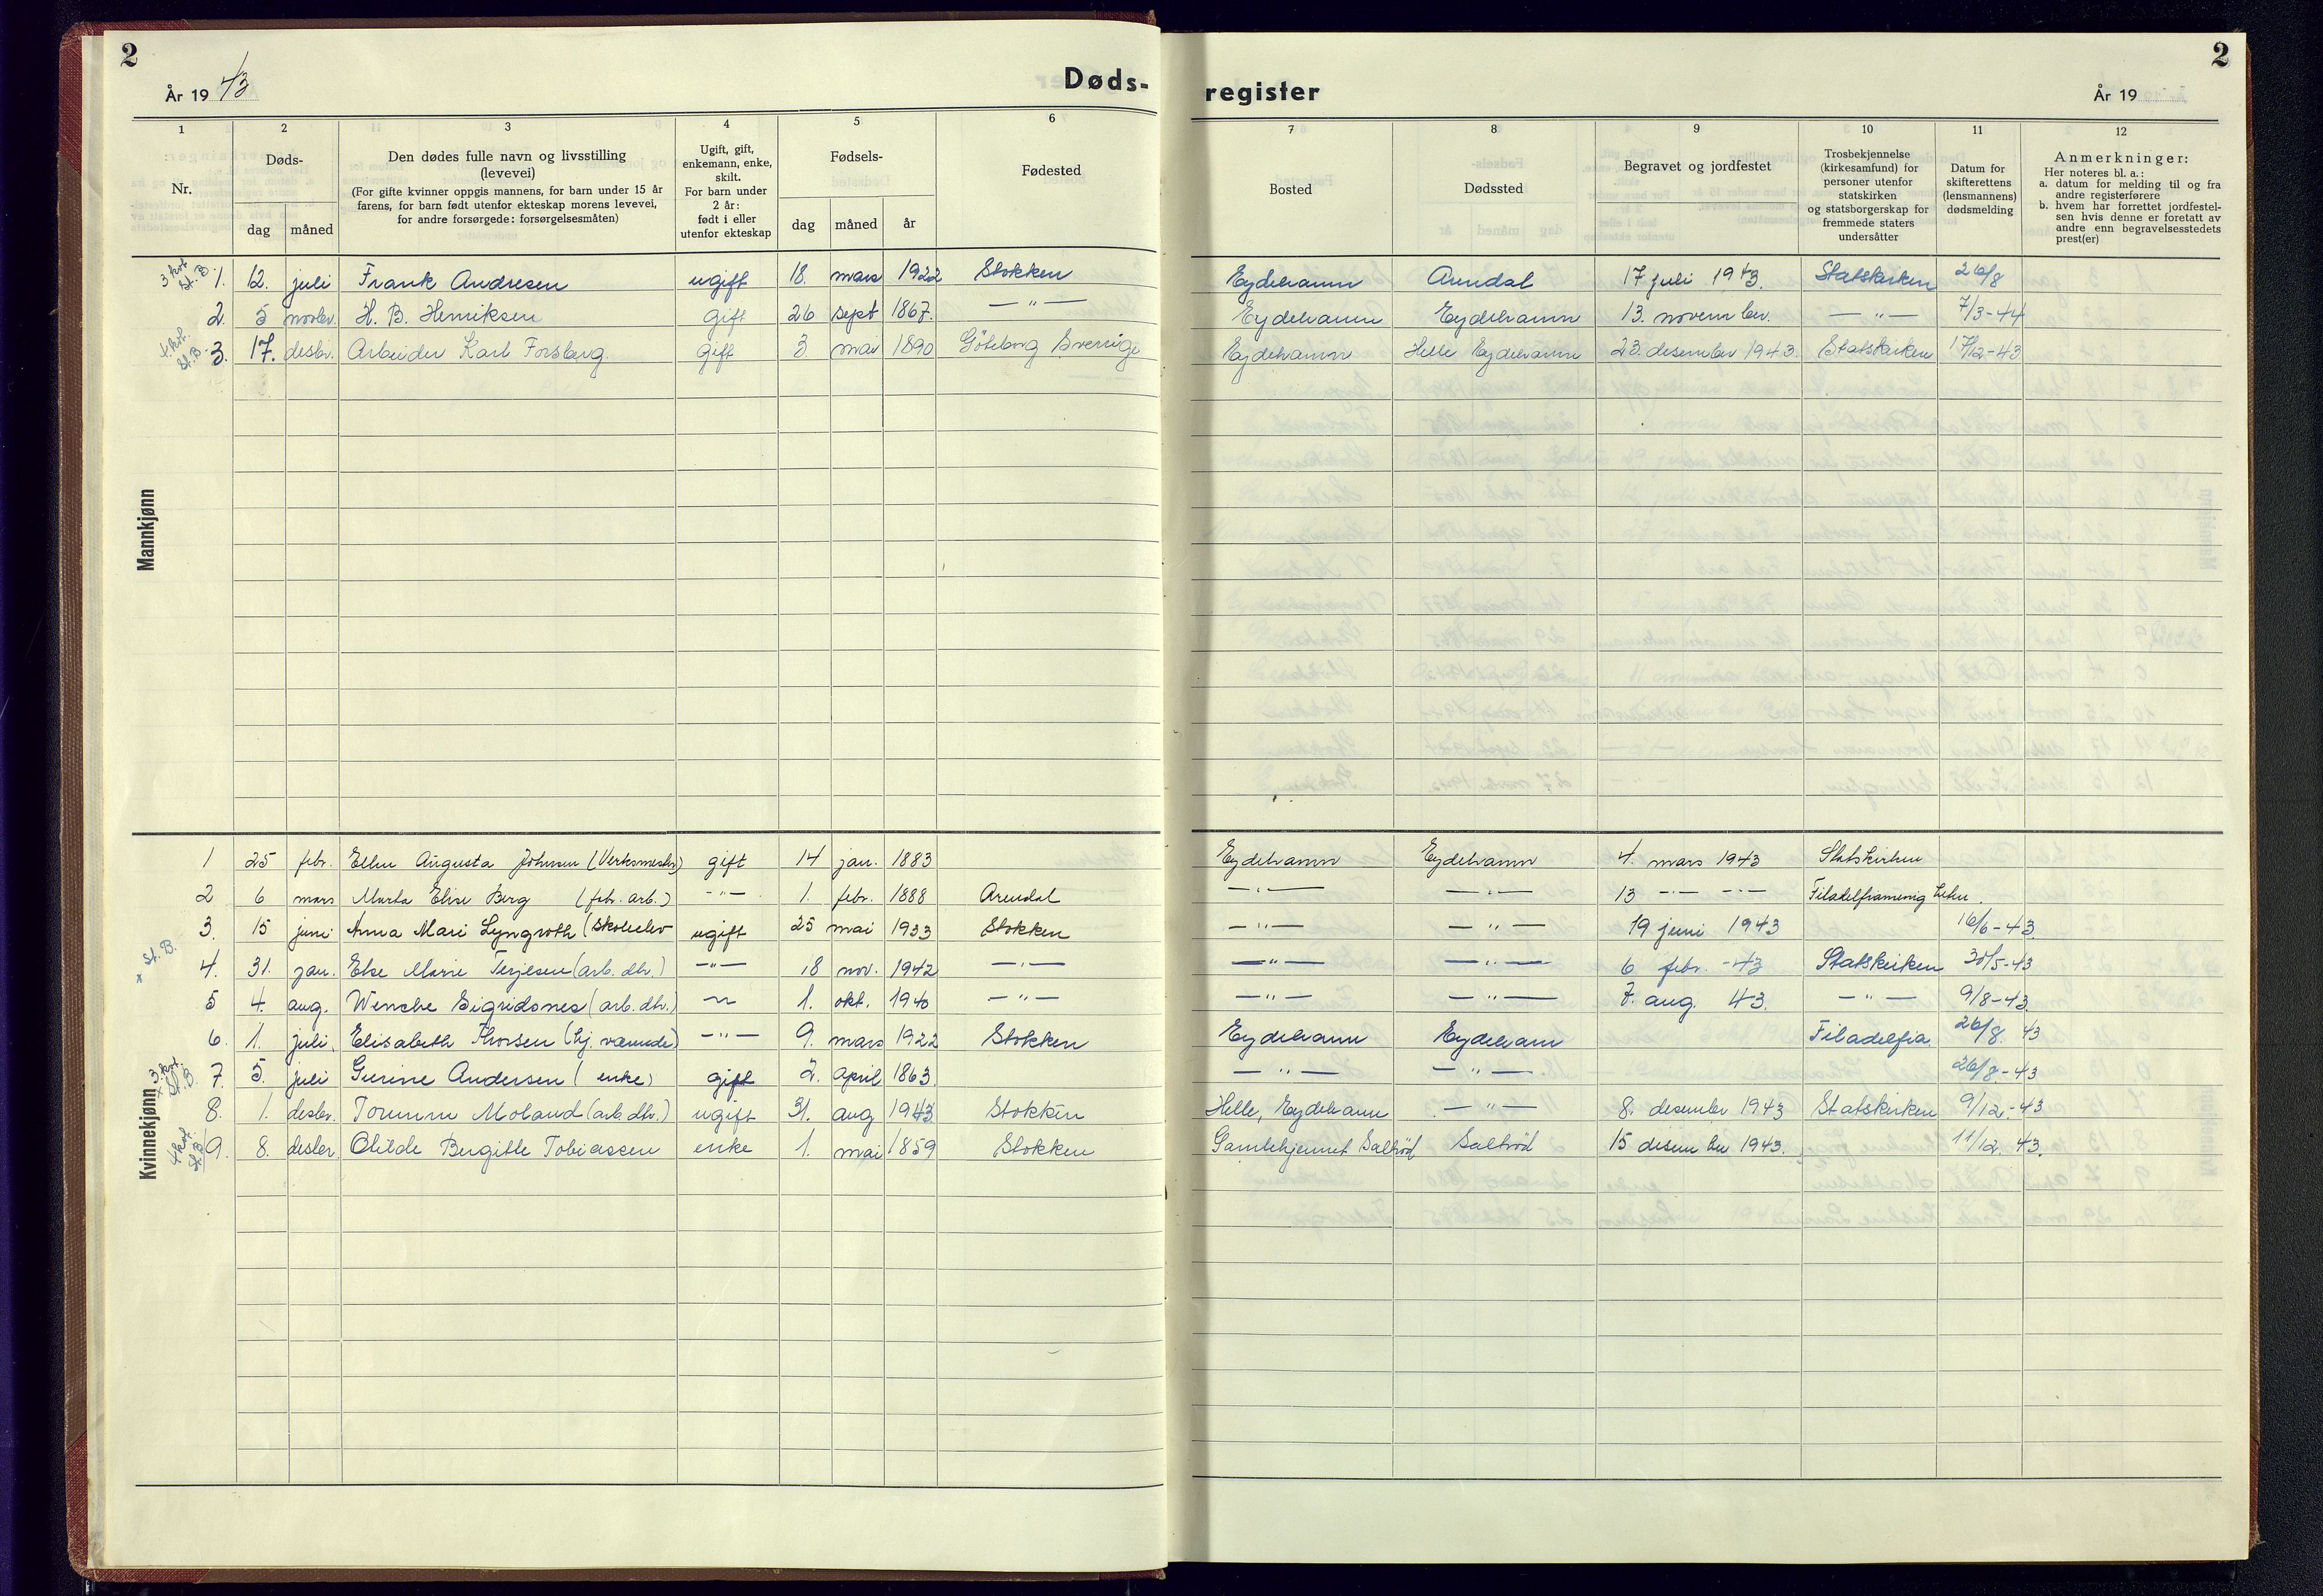 2
År 1943
Døds-
register
År 19
2
1 2 3 4 5 6 7 8 9 10 11 12
Nr.
Døds-
dag måned
Den dødes fulle navn og livsstilling
(levevei)
(For gifte kvinner oppgis mannens, for barn under 15 år
farens, for barn født utenfor ekteskap morens levevei,
for andre forsørgede: forsørgelsesmåten)
Ugift, gift,
enkemann, enke,
skilt.
For barn under
2 år:
født i eller
utenfor ekteskap
Fødsels-
dag måned år
Fødested
Bosted
Dødssted
Begravet og jordfestet
Trosbekjennelse
(kirkesamfund) for
personer utenfor
statskirken
og statsborgerskap for
fremmede staters
undersåtter
Datum for
skifterettens
(lensmannens)
dødsmelding
Anmerkninger:
Her noteres bl. a.:
a. datum for melding til og fra
andre registerførere
b. hvem har forrettet jordfestel-
sen hvis denne er foretatt av
andre enn begravelsesstedets
prest(er)
Mannkjønn
3 kvt St. B. 1. 12. juli Frank Andresen ugift 18. mars 1922 Stokken Eydehamn Arendal 17 juli 1943. Statskirken 26/8
2. 5 novbr. H. B. Henriksen gift 26 sept 1867. — " — Eydehamn Eydehamn 13. november. — " — 7/3-44
4. kvt. St. B. 3. 17. desbr. Arbeider Karl Forsberg gift 3 mai 1890 Göteborg Sverrige Eydehamn Helle Eydehamn 23. desember 1943. Statskirken 17/12-43
Kvinnekjønn
1 25 febr. Ellen Augusta Johnsen (Verksmester) gift 14 jan. 1883 Eydehamn Eydehamn 4. mars 1943 Statskirken
2 6 mars Marta Elise Berg (fabr. arb.) - " - 1. febr. 1888 Arendal — " — — " — 13 - " - - " -
3. 15 juni Anna Mari Lyngroth (skoleelev ugift 25 mai 1933 Stokken — " — — " — 19 juni 1943 16/6-43
x St. B. 4. 31. jan. Else Marie Terjesen (arb. dtr.) — " — 18 nov. 1942 — " — — " — — " — 6 febr. -43 Statskirken 30/5-43
5 4. aug. Wenche Sigridsnes (arb. dtr.) — " — 1. okt. 1940 — " — — " — — " — 7. aug. 43. — " — 9/8-43
6. 1. juli. Elisabeth Thorsen (hj. værende) - " - 9. mars 1922 Stokken Eydehamn Eydehamn Filadelfia 26/8. 43
x 3. kvt. St. B. 7. 5. juli Gurine Andersen (enke) gift 2. april 1863. — " — — " — 26/8.-43
8. 1. desbr. Torunn Moland (arb. dtr.) ugift 31. aug 1943 Stokken Helle, Eydehamn — " — 8. desember 1943 Statskirken 9/12-43
4 kvt. St. B. 9. 8. desbr. Olilde Bergitte Tobiassen enke 1. mai 1859 Stokken Gamlehjemmet Saltrød Saltrød 15 desember 1943. 11/12. 43.